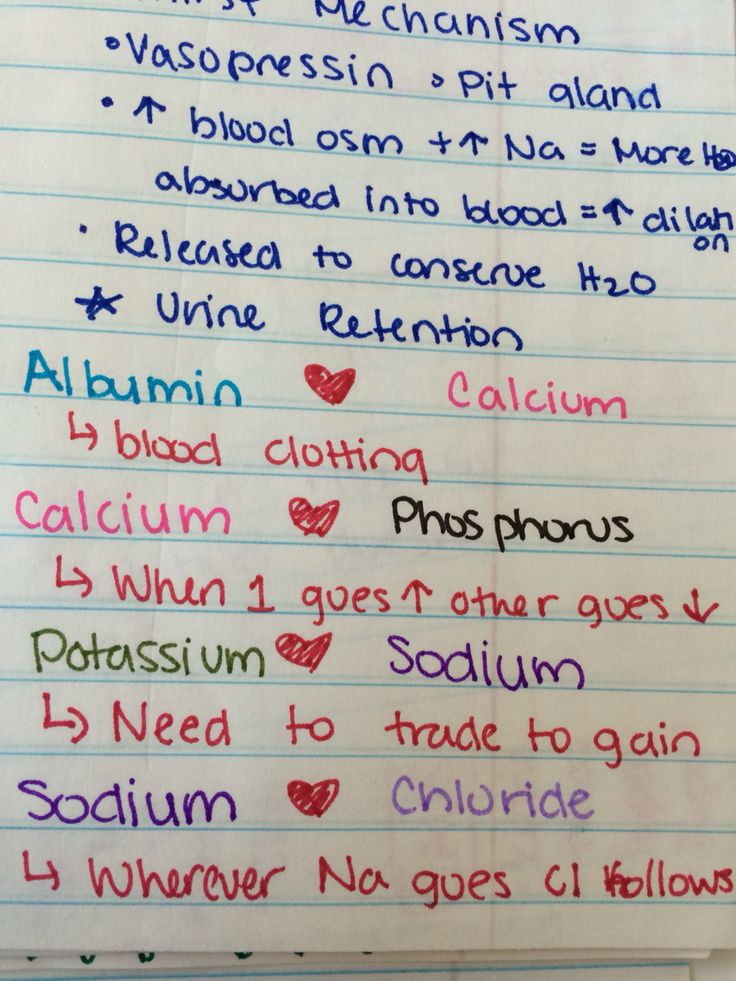 Mechanism
• Vasopressin > Pit gland
• ↑ blood osm + ↑ Na = More H2O
absorbed into blood = ↑ dilati
on
• Released to conserve H2O
☆ Urine Retention
Albumin ♥ Calcium
↳ blood clotting
Calcium ♥ Phosphorus
↳ When 1 goes ↑ other goes ↓
Potassium ♥ Sodium
↳ Need to trade to gain
Sodium ♥ Chloride
↳ Wherever Na goes Cl follows